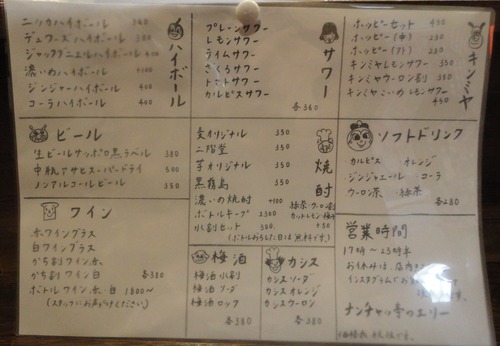 ハイボール
ニッカハイボール 360
デュワーズハイボール 380
ジャックダニエルハイボール 400
濃いめハイボール 400
ジンジャーハイボール 400
コーラハイボール 400
サワー
プレーンサワー
レモンサワー
ライムサワー
ざくろサワー
トマトサワー
カルピスサワー
各360
キンミヤ
ホッピーセット 450
ホッピー(中) 230
ホッピー(外) 230
キンミヤレモンサワー
キンミヤウーロン割 350
キンミヤこいめレモンサワー
450
ビール
生ビールサッポロ黒ラベル 380
中瓶アサヒスーパードライ 500
ノンアルコールビール 350
焼酎
麦オリジナル 350
二階堂 350
芋オリジナル 350
黒霧島 350
濃いの焼酎 +100
ボトルキープ 2300
水割セット 300
緑茶・ウーロン割
カットレモン・梅干
(ボトルおろした日は無料です)
ソフトドリンク
カルピス ・オレンジ
ジンジャエール ・コーラ
ウーロン茶 ・緑茶
各230
ワイン
赤ワイングラス
白ワイングラス
かち割ワイン赤
かち割ワイン白 各380
ボトルワイン赤、白 1800〜
(スタッフにお声がけください)
梅酒
梅酒水割
梅酒ソーダ
梅酒ロック
各380
カシス
カシスソーダ
カシスオレンジ
カシスウーロン
各380
営業時間
17時〜23時半
お休みは、店内
インスタグラムで
ナンチャッ亭のエリー